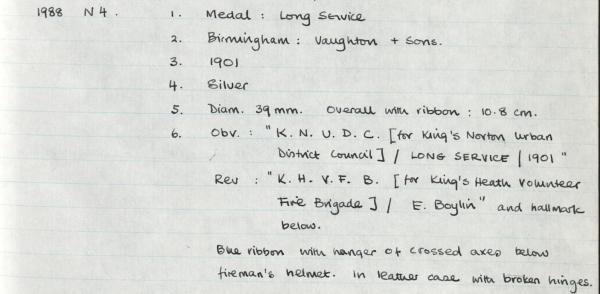 1988 N4. 1. Medal : Long Service
2. Birmingham : Vaughton + Sons.
3. 1901
4. Silver
5. Diam. 39mm. Overall with ribbon : 10.8 cm.
6. Obv. : "K. N. U. D. C. [for King's Norton Urban
District Council] / LONG SERVICE / 1901"
Rev : "K. H. V. F. B. [for King's Heath Volunteer
Fire Brigade] / E. Boylin" and hallmark
below.
Blue ribbon with hanger of crossed axes below
fireman's helmet. In leather case with broken hinges.